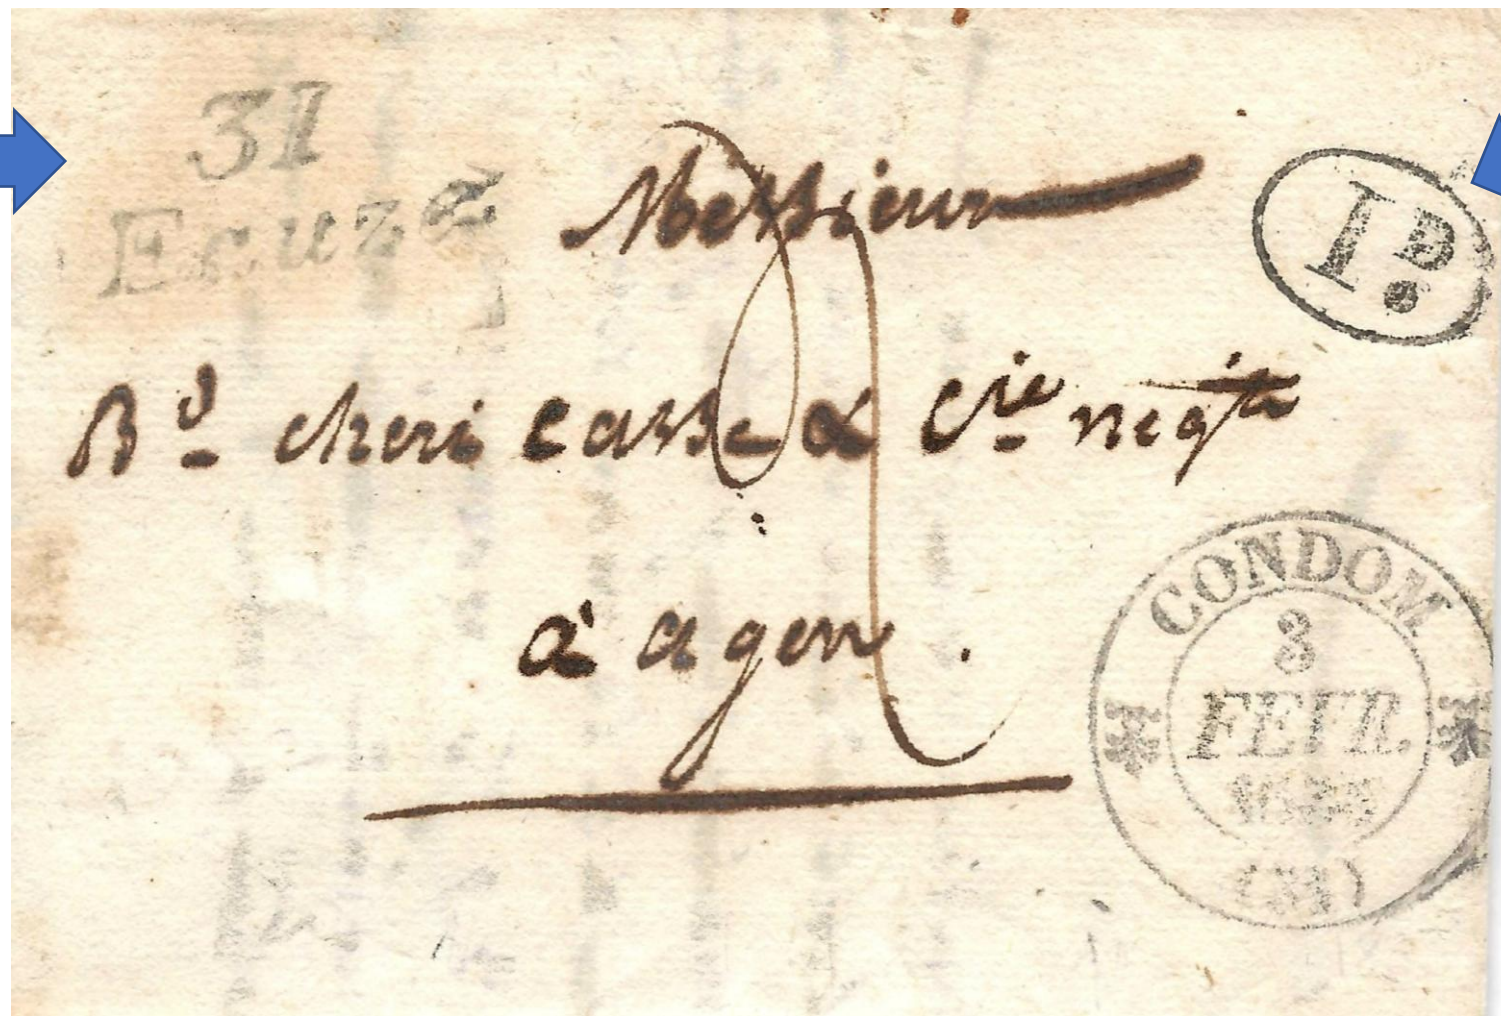 31
Eauze
1 D.
Messieurs
Bd cheri Casse & Cie negts
à agen.
CONDOM
3
FEVR.
(31)